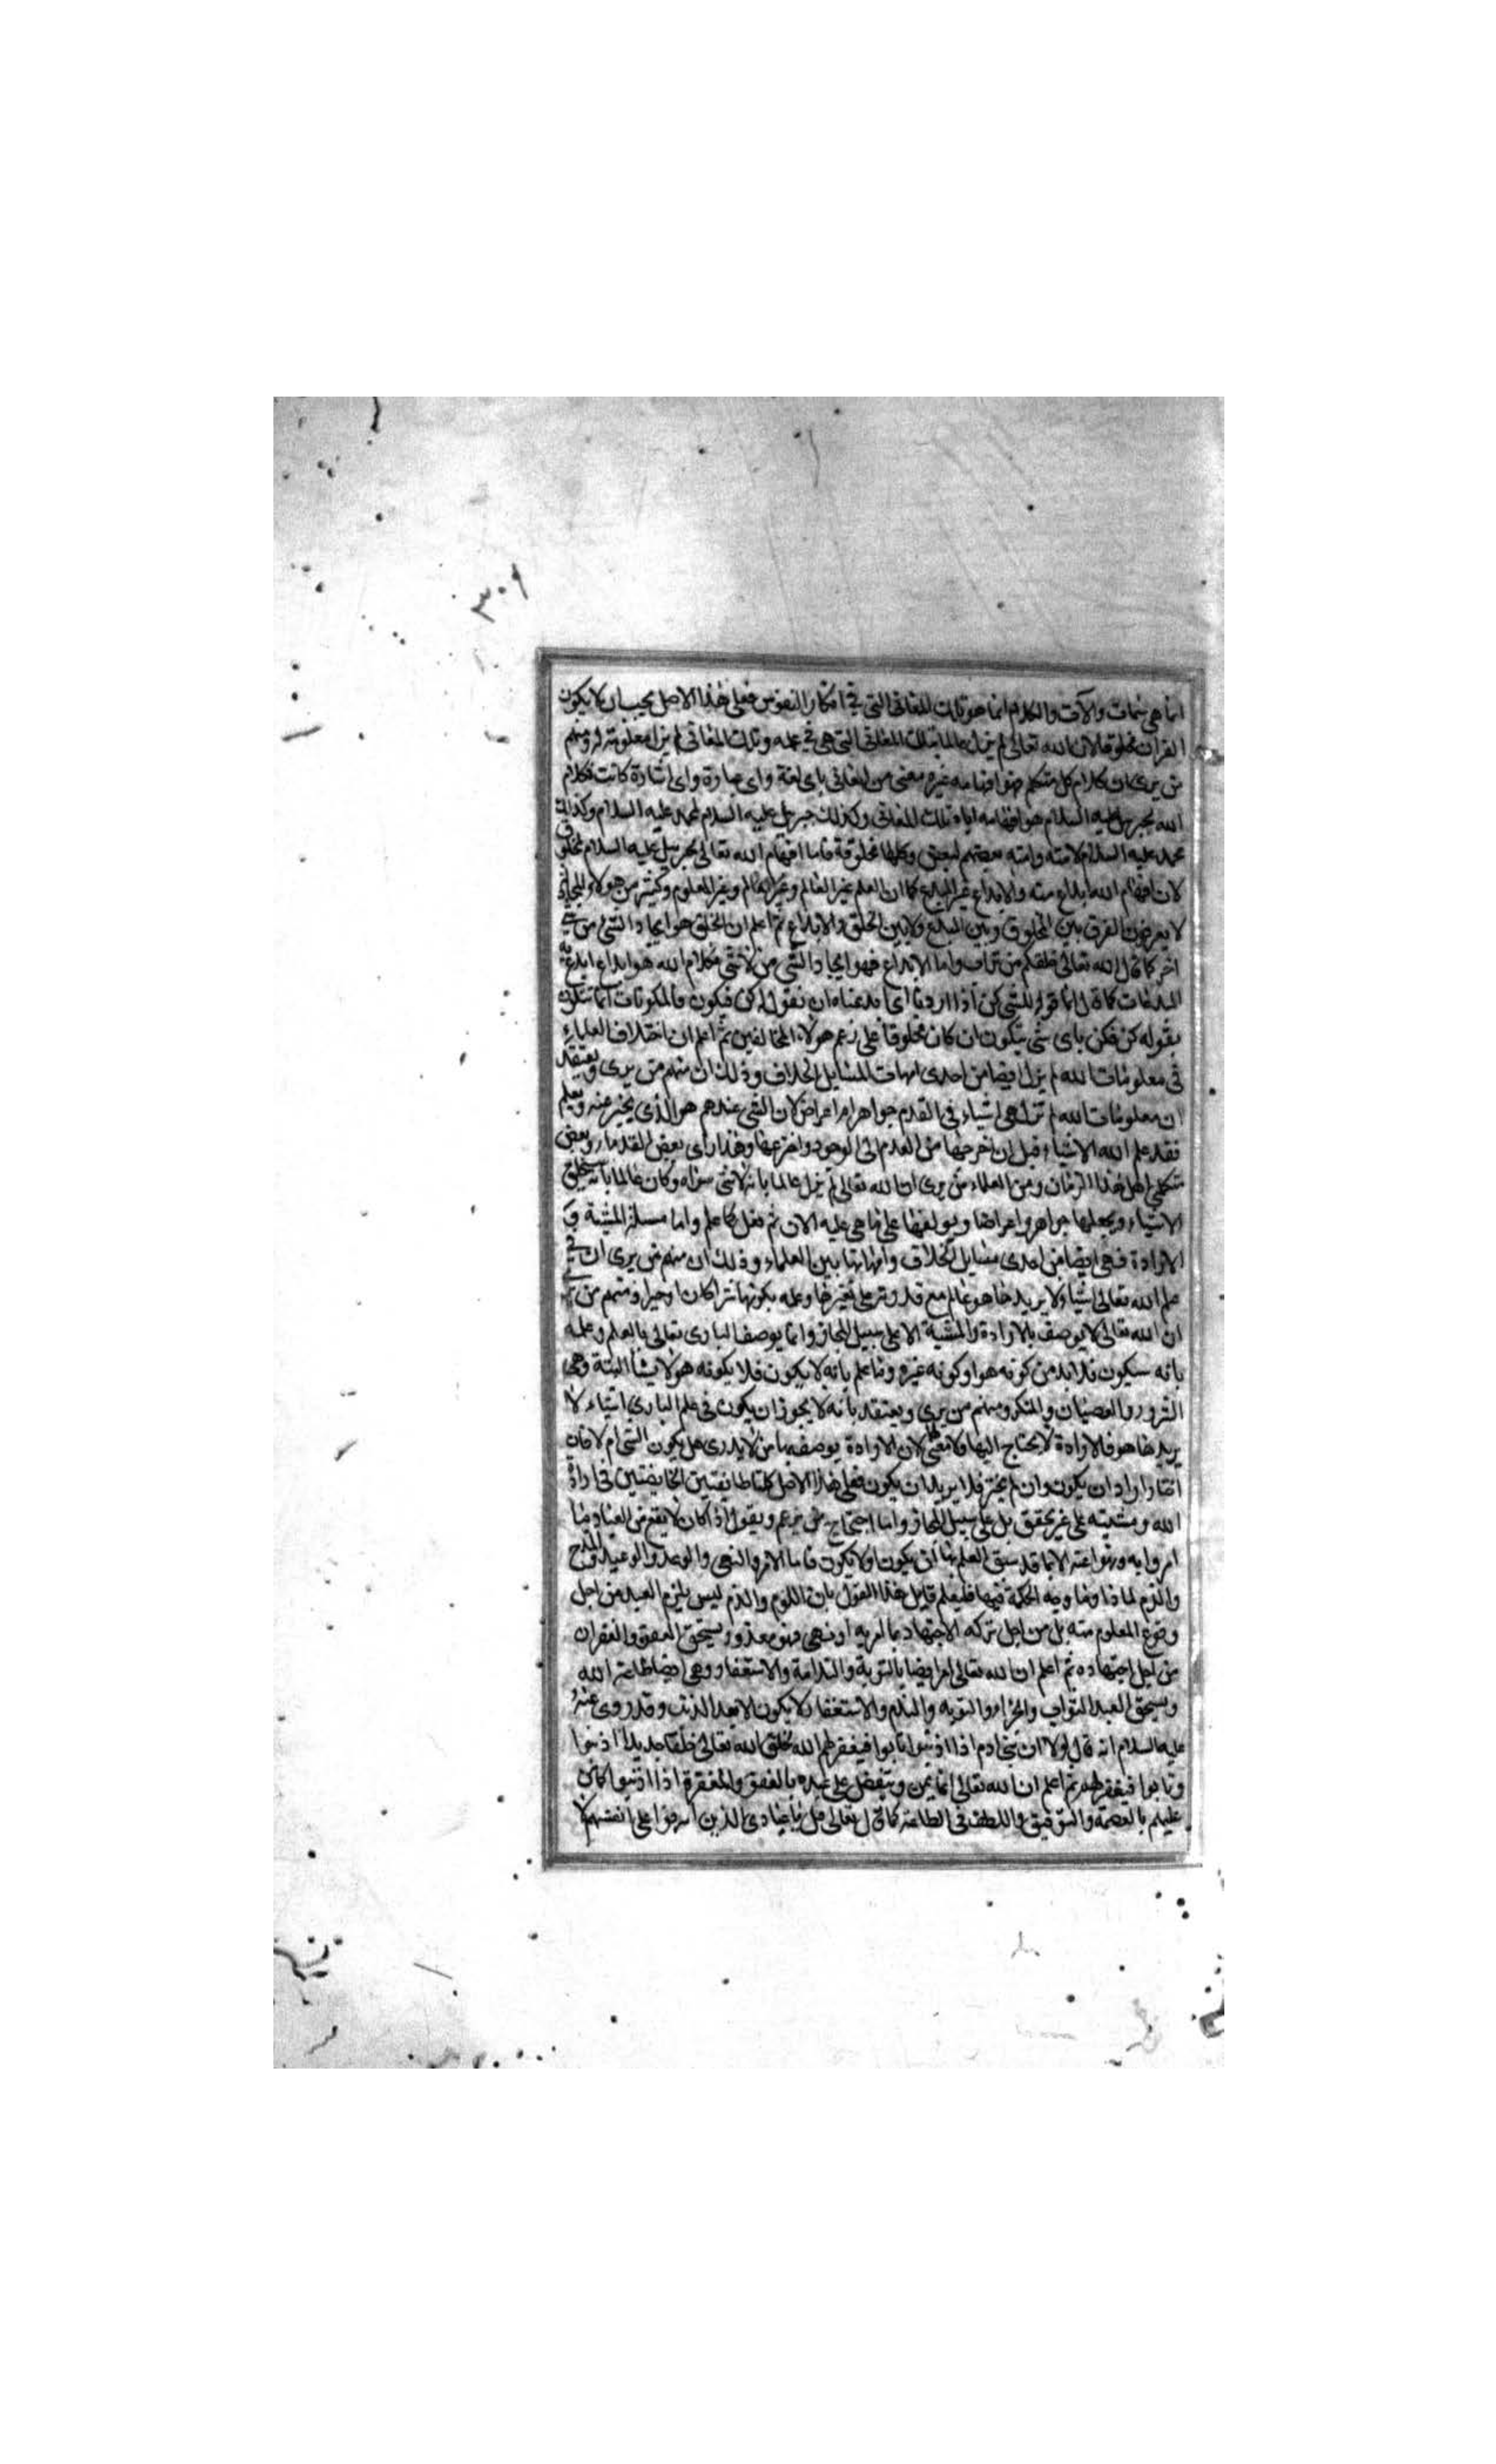 ٣٠١
انما هي سمات وآلات والكلام انما هو تلك المعاني التي في افكار النفوس فعلى هذا الاصل يجب ان لا يكون
القران مخلوقا لان الله تعالى لم يزل عالما بتلك المعاني التي هي في علمه وتلك المعاني لم يزل معلومة له ومنهم
من يرى ان كلام كل متكلم هو افهامه غيره معنى من المعاني باى لغة واى عبارة واى اشارة كانت فكلام
الله لجبريل عليه السلام هو افهامه اياه تلك المعاني وكذلك جبريل عليه السلام لمحمد عليه السلام وكذلك
محمد عليه السلام لامته وامته بعضهم لبعض وكلها مخلوقة فاما افهام الله تعالى لجبريل عليه السلام مخلوق
لان افهام الله ابداع منه والابداع غير المبدع كما ان العلم غير العالم وغير المعلوم وكثير من هولاء
لا يعرفون الفرق بين المخلوق وبين المبدع ولا بين الخلق والابداع ثم اعلم ان الخلق هو ايجاد الشى من شى
اخر كما قال الله تعالى خلقكم من تراب واما الابداع فهو ايجاد الشى من لا شى فكلام الله هو ابداع ابدع به
المبدعات كما قال انما قوله للشى كن اذا اردنا اى ابدعناه ان نقول له كن فيكون فالمكونات انما تتكون
بقوله كن فكن باى شى يتكون ان كان مخلوقا على زعم هولاء المخالفين ثم اعلم ان اختلاف العلماء
في معلومات الله لم يزل ايضا من احدى امهات المسايل الخلاف وذلك ان منهم من يرى ويعتقد
ان معلومات الله لم تزل هي اشياء في القدم جواهر او اعراض لان الشى عندهم هو الذى يخبر عنه ويعلم
فقد علم الله الاشياء قبل ان اخرجها من العدم الى الوجود واخترعها وهذا راى بعض القدماء وبعض
متكلمي اهل هذا الزمان ومن العلماء من يرى ان الله تعالى لم يزل عالما بانه لا شى سواه وكان عالما بانه سيخلق
الاشياء ويجعلها جواهر واعراضا ويولفها على ما هي عليه الان ثم فعل كما علم واما مسئلة المشية و
الارادة فهي ايضا من احدى مسايل الخلاف وامهاتها بين العلماء وذلك ان منهم من يرى ان في
علم الله تعالى اشياء لا يريدها هو عالم مع قدرته على تغييرها وعلمه بكونها شرا كان او خيرا ومنهم من يرى
ان الله تعالى لا يوصف بالارادة والمشية الا على سبيل المجاز وانما يوصف البارى تعالى بالعلم وعلمه
بانه سيكون فلا بد من كونه هو او كونه غيره وما علم بانه لا يكون فلا يكونه هو لا يشأ البتة وهي
الشرور والعصيان والمنكر ومنهم من يرى ويعتقد بانه لا يجوز ان يكون في علم البارى اشياء لا
يريدها هو فالارادة لا يحتاج اليها ولا معنى لها لان الارادة يوصف بها من لا يدرى هل يكون الشى ام لا فان
اختار اراد ان يكون وان لم يختر فلا يريد ان يكون فعلى هذا الاصل كلتا طايفتين الخايضتين في ارادة
الله ومشيته على غير تحقق بل على سبيل المجاز واما احتجاج من يزعم ويقول اذا كان لا يقع من العباد مما
امروا به ونهوا عنه الا بما قد سبق العلم بها ان يكون او لا يكون فاما الامر والنهى والوعد والوعيد والمدح
والذم لماذا وما وجه الحكمة فيها فليعلم قايل هذا القول بان اللوم والذم ليس يلزم العبد من اجل
وقوع المعلوم منه بل من اجل تركه الاجتهاد بما امر به او نهى فهو معذور ويستحق العفو والغفران
من اجل اجتهاده ثم اعلم ان الله تعالى امر ايضا بالتوبة والندامة والاستغفار وهى ايضا طاعة الله
ويستحق العبد الثواب والجزاء والتوبة والندم والاستغفار لا يكون الا بعد الذنب وقد روى عنه
عليه السلام انه قال لولا ان بنى ادم اذا اذنبوا تابوا فيغفر لهم الله لخلق الله تعالى خلقا جديدا اذنبوا
وتابوا فيغفر لهم ثم اعلم ان الله تعالى انما يمن ويتفضل على عبده بالعفو والمغفرة اذا اذنبوا كما من
عليهم بالعصمة والتوفيق واللطف في الطاعة كما قال تعالى قل يا عبادى الذين اسرفوا على انفسهم لا